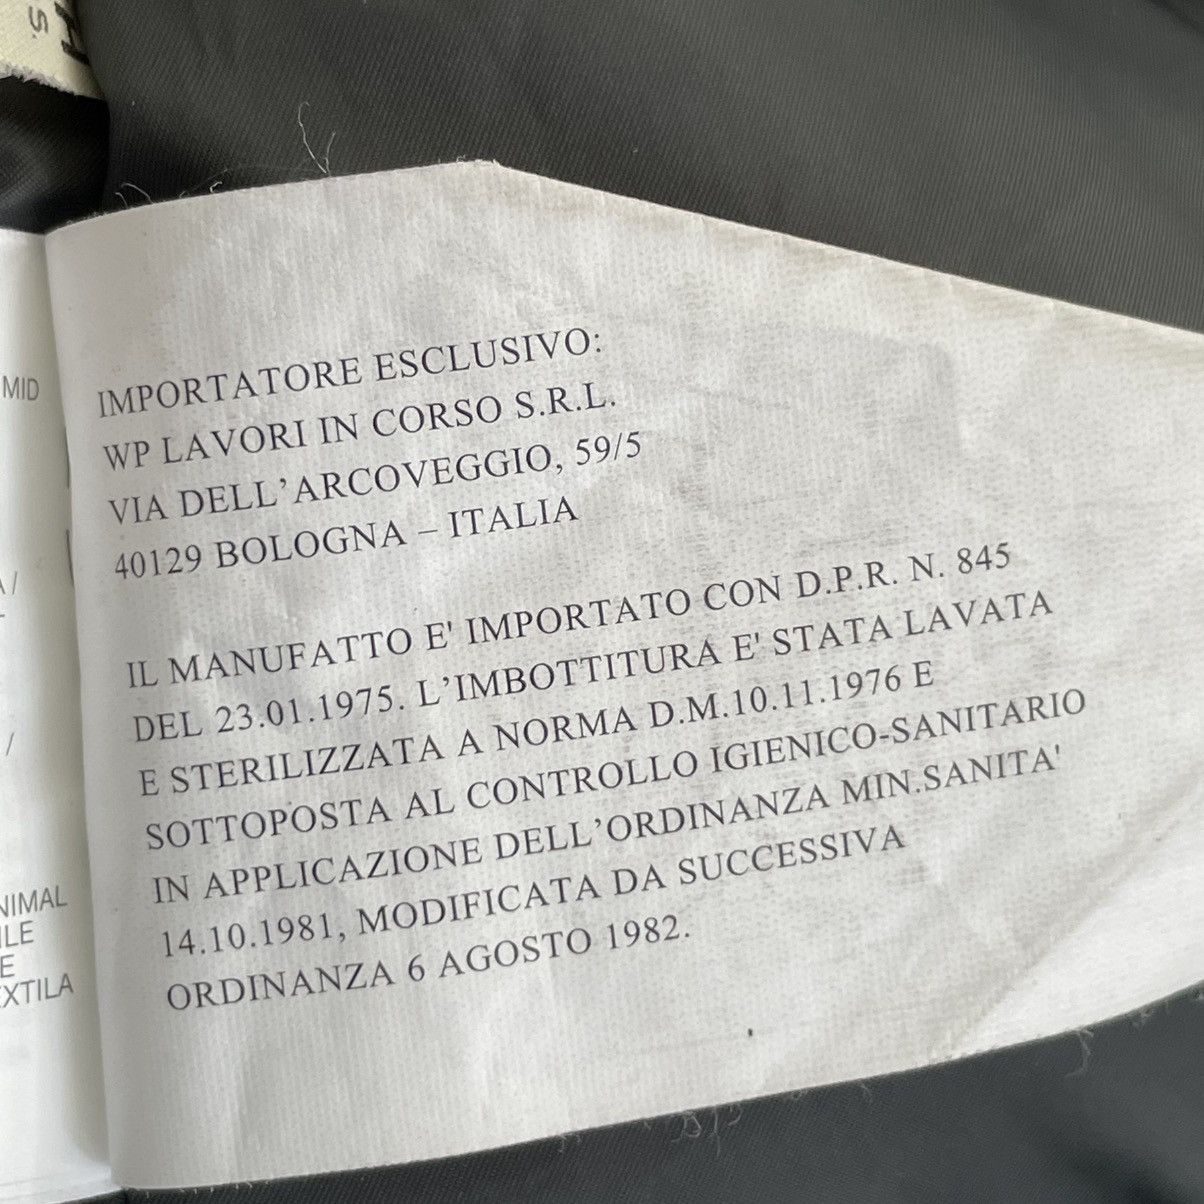 H
S.
MID
A /
/
NIMAL
ILE
E
EXTILA
IMPORTATORE ESCLUSIVO:
WP LAVORI IN CORSO S.R.L.
VIA DELL’ARCOVEGGIO, 59/5
40129 BOLOGNA – ITALIA
IL MANUFATTO E' IMPORTATO CON D.P.R. N. 845
DEL 23.01.1975. L’IMBOTTITURA E' STATA LAVATA
E STERILIZZATA A NORMA D.M.10.11.1976 E
SOTTOPOSTA AL CONTROLLO IGIENICO-SANITARIO
IN APPLICAZIONE DELL’ORDINANZA MIN.SANITA'
14.10.1981, MODIFICATA DA SUCCESSIVA
ORDINANZA 6 AGOSTO 1982.